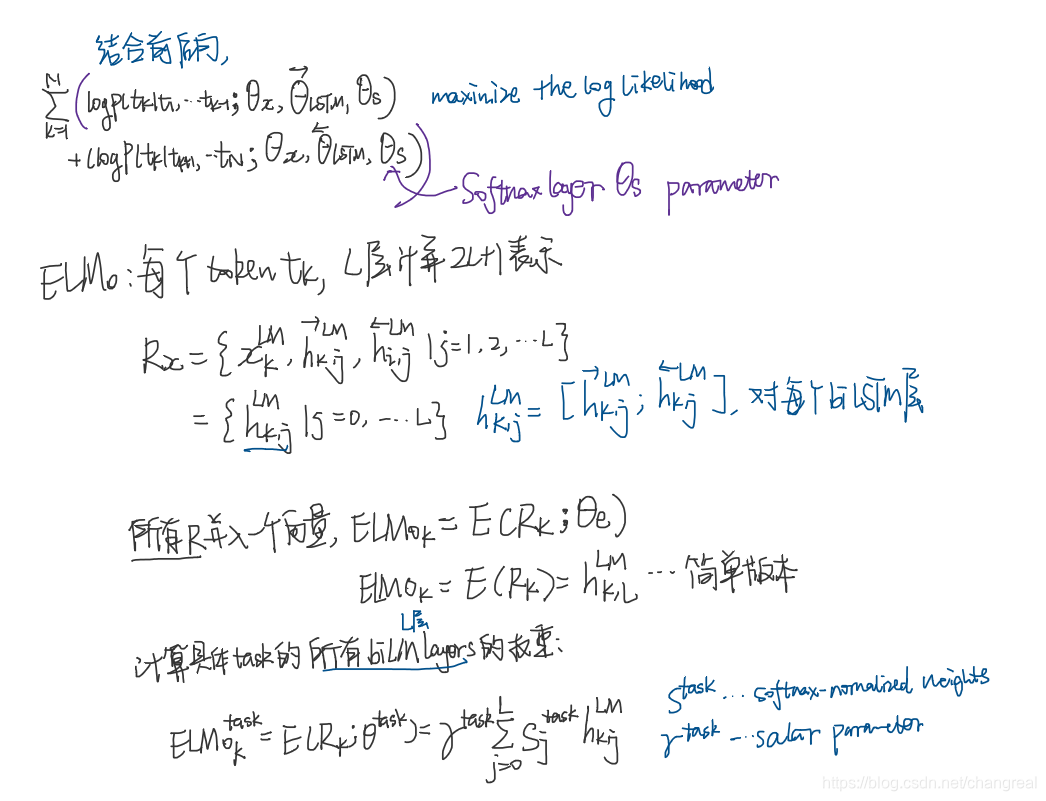 结合前后向,
\sum_{k=1}^{N} ( log p(t_k|t_1, ... t_{k-1}; θ_x, \overrightarrow{θ}_{LSTM}, θ_s) maximize the log likelihood
+ (log p(t_k|t_{k+1}, ... t_N; θ_x, \overleftarrow{θ}_{LSTM}, θ_s))
Softmax layer θ_s parameter
ELMo: 每个 token t_k, L层计算2L+1表示
R_x = { x_k^{LM}, \overrightarrow{h}_{k,j}^{LM}, \overleftarrow{h}_{i,j}^{LM} | j=1, 2, ... L}
= { h_{k,j}^{LM} | j=0, ... L} h_{k,j}^{LM} = [ \overrightarrow{h}_{k,j}^{LM} ; \overleftarrow{h}_{k,j}^{LM} ], 对每个biLSTM层
所有R并入一个向量, ELMo_k = E(R_k; θ_e)
ELMo_k = E(R_k) = h_{k,L}^{LM} ... 简单版本
L层
计算具体task的所有biLM layers的权重:
ELMo_k^{task} = E(R_k; θ^{task}) = γ^{task} \sum_{j=0}^{L} S_j^{task} h_{k,j}^{LM}
S^{task} ... softmax-normalized weights
γ^{task} ... scalar parameter
https://blog.csdn.net/changreal